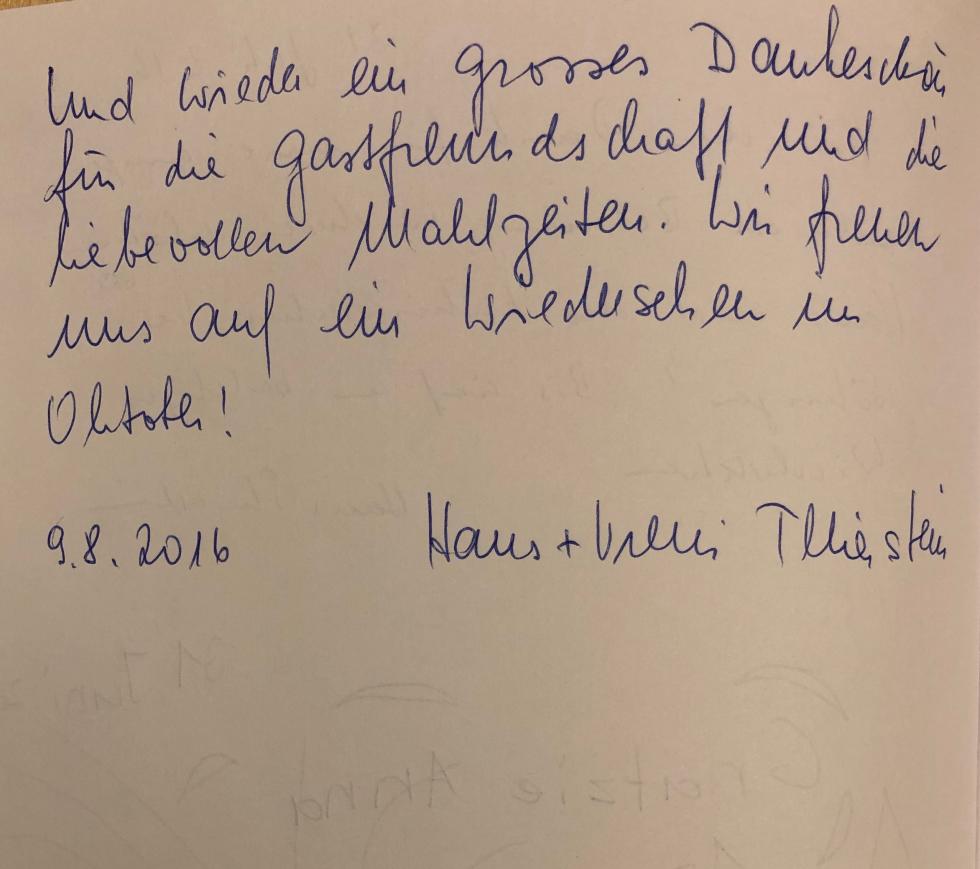 Und wieder ein grosses Dankeschön
für die Gastfreundschaft und die
liebevollen Mahlzeiten. Wir freuen
uns auf ein Wiedersehen im
Oktober!
9.8.2016 Hans + Vreni Thierstein
Grazie Anna